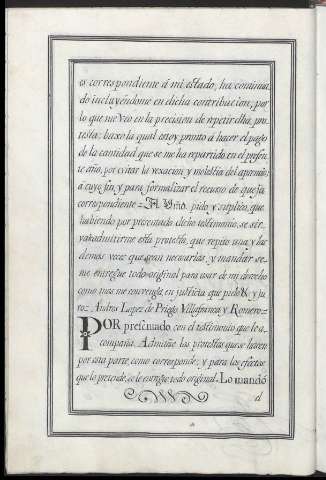 es correspondiente á mi estado, ha continua
do incluyendome en dicha contribucion; por
lo que me veo en la precision de repetir dha. pro
testa: baxo la qual estoy pronto à hacer el pago
de la cantidad que se me ha repartido en el presen
te año, por evitar la vexacion y molestia del apremio:
a cuyo fin, y para formalizar el recurso de quexa
correspondiente = A Vmd. pido y suplico, que
habiendo por presentado dicho testimonio, se sir
va admitirme esta protesta, que repito una y las
demás veces que sean necesarias, y mandar se
me entregue todo original para usar de mi derecho
como mas me convenga, en justicia que pido & y ju
ro = Andres Lopez de Priego Villafranca y Romero =
POR presentado con el testimonio que lo a
compaña. Admitese las protestas que se hacen
por esta parte, como corresponde; y para los efectos
que lo pretende, se le entregue todo original. Lo mandó
el